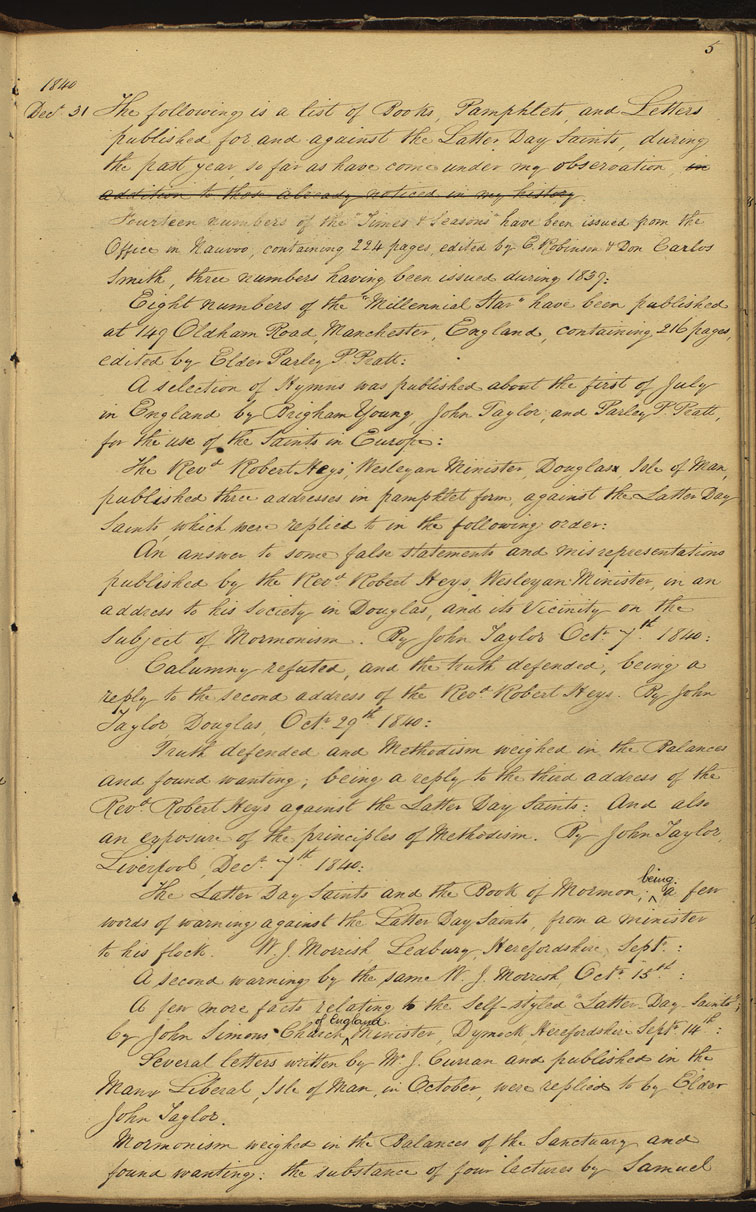 5
1840
Decr 31 The following is a list of Books, Pamphlets, and Letters
published for and against the Latter Day Saints, during
the past year, so far as have come under my observation, in
addition to those already noticed in my history.
Fourteen numbers of the "Times & Seasons" have been issued from the
Office in Nauvoo, containing 224 pages, edited by E. Robinson & Don Carlos
Smith, three numbers having been issued during 1839:
Eight numbers of the "Millennial Star" have been published
at 149 Oldham Road, Manchester, England, containing 216 pages,
edited by Elder Parley P. Pratt:
A selection of Hymns was published about the first of July
in England by Brigham Young, John Taylor, and Parley P. Pratt,
for the use of the Saints in Europe:
The Revd Robert Heys, Wesleyan Minister, Douglas Isle of Man,
published three addresses in pamphlet form, against the Latter Day
Saints, which were replied to in the following order:
An answer to some false statements and misrepresentations
published by the Revd Robert Heys, Wesleyan Minister, in an
address to his Society in Douglas, and its Vicinity on the
subject of Mormonism. By John Taylor Octr 7th 1840:
Calumny refuted, and the truth defended, being a
reply to the second address of the Revd Robert Heys. By John
Taylor Douglas, Octr 29th 1840:
Truth defended and Methodism weighed in the Balances
and found wanting; being a reply to the third address of the
Revd Robert Heys against the Latter Day Saints: And also
an exposure of the principles of Methodism. By John Taylor,
Liverpool, Decr 7th 1840:
The Latter Day Saints and the Book of Mormon; being a few
words of warning against the Latter Day Saints, from a minister
to his flock. W. J. Morrish, Ledbury, Herefordshire, Septr:
A second warning by the same W. J. Morrish, Octr 15th:
A few more facts relating to the self-styled "Latter-Day Saints";
by John Simons Church of England Minister, Dymock, Herefordshire Septr 14th:
Several letters written by W. J. Curran and published in the
Manx Liberal, Isle of Man, in October, were replied to by Elder
John Taylor.
Mormonism weighed in the Balances of the Sanctuary and
found wanting: the substance of four lectures by Samuel